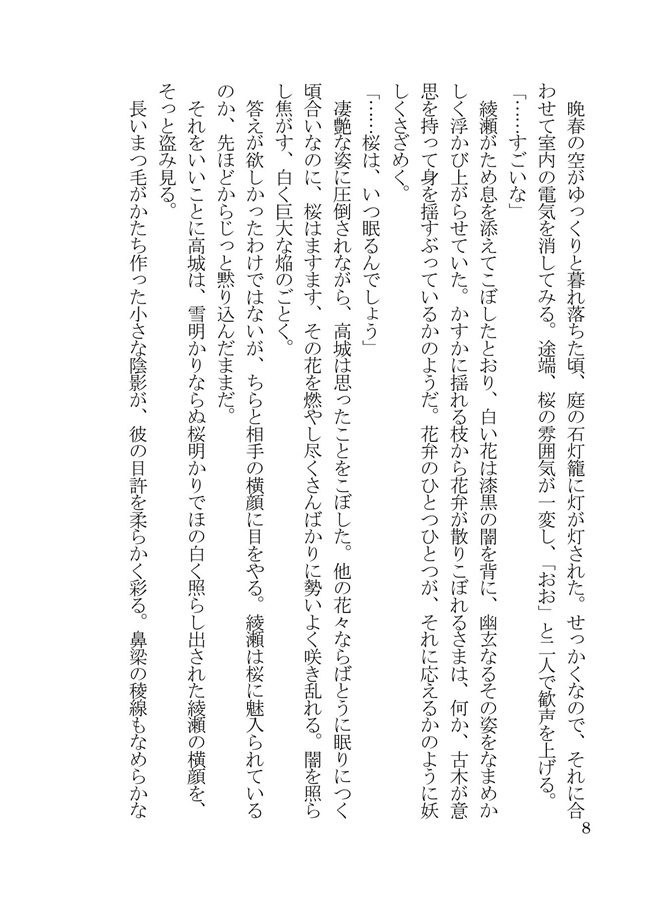 晩春の空がゆっくりと暮れ落ちた頃、庭の石灯籠に灯が灯された。せっかくなので、それに合
わせて室内の電気を消してみる。途端、桜の雰囲気が一変し、「おお」と二人で歓声を上げる。
「……すごいな」
　綾瀬がため息を添えてこぼしたとおり、白い花は漆黒の闇を背に、幽玄なるその姿をなまめか
しく浮かび上がらせていた。かすかに揺れる枝から花弁が散りこぼれるさまは、何か、古木が意
思を持って身を揺すぶっているかのようだ。花弁のひとつひとつが、それに応えるかのように妖
しくさざめく。
「……桜は、いつ眠るんでしょう」
　凄艶な姿に圧倒されながら、高城は思ったことをこぼした。他の花々ならばとうに眠りにつく
頃合いなのに、桜はますます、その花を燃やし尽くさんばかりに勢いよく咲き乱れる。闇を照ら
し焦がす、白く巨大な焔のごとく。
　答えが欲しかったわけではないが、ちらと相手の横顔に目をやる。綾瀬は桜に魅入られている
のか、先ほどからじっと黙り込んだままだ。
　それをいいことに高城は、雪明かりならぬ桜明かりでほの白く照らし出された綾瀬の横顔を、
そっと盗み見る。
　長いまつ毛がかたち作った小さな陰影が、彼の目許を柔らかく彩る。鼻梁の稜線もなめらかな
8